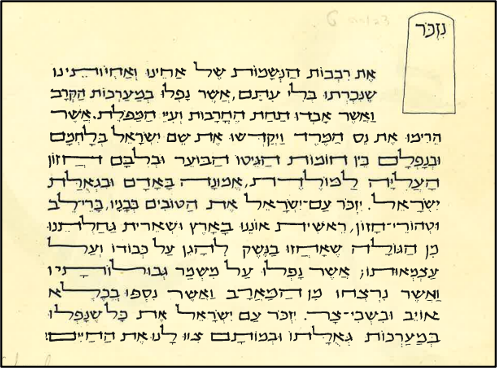 נִזְכֹּר
את רבבות הנשמות של אחינו ואחיותינו
שנכרתו בלי עתם, אשר נפלו במערכות הקרב
ואשר אבדו תחת החרבות ועיי המפלת. אשר
הרימו את נס המרד ויקדשו את שם ישראל בלחמם
ובנפלם בין חומות הגיטו הבוער ובלבם חזון
העליה למולדת, אמונה באדם ובגאולת
ישראל. יזכר עם-ישראל את הטובים בבניו, ברי-לב
וטהורי-חזון, ראשית אוננו בארץ ושארית גחלתנו
מן הגולה שאחזו בנשק להגן על כבודו ועל
עצמאותו; אשר נפלו על משמר גבולותיו
ואשר נרצחו מן המארב ואשר נספו בכלא
אויב ובשבי-צר. יזכר עם ישראל את כל שנפלו
במערכות גאלתו ובמותם צוו לנו את החיים!